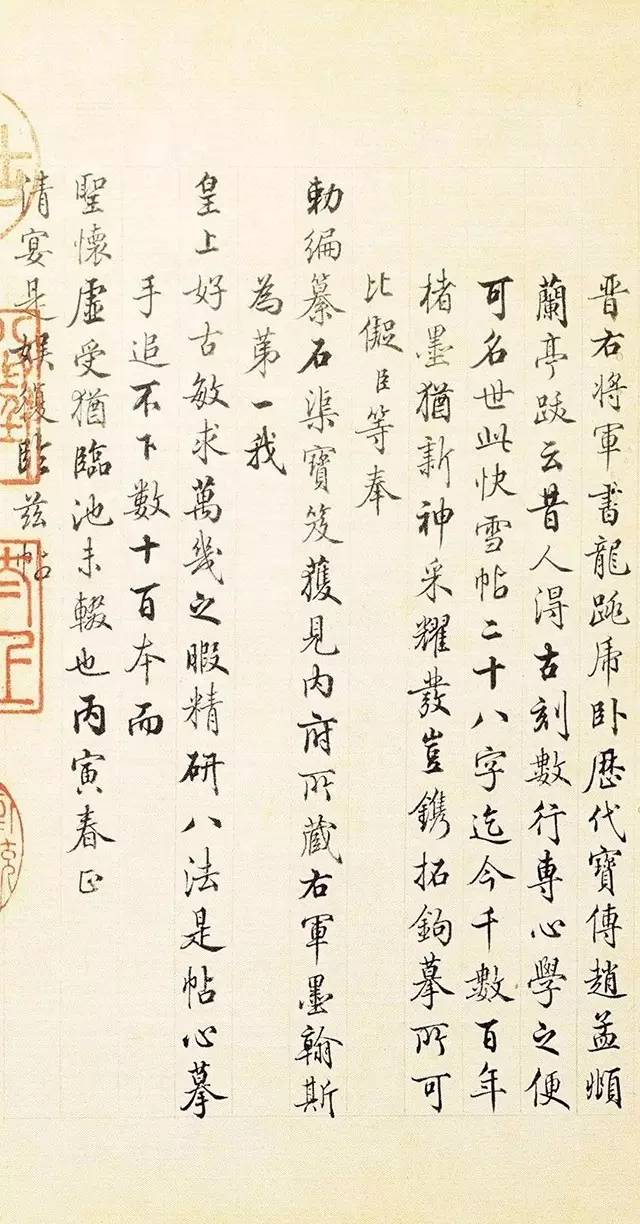 晉右將軍書龍跳虎卧歷代寶傳趙孟頫
蘭亭跋云昔人得古刻數行專心學之便
可名世此快雪帖二十八字迄今千數百年
楮墨猶新神采耀發豈鐫拓鉤摹所可
比儗臣等奉
勅編纂石渠寶笈獲見内府所蔵右軍墨翰斯
為第一我
皇上好古敏求萬幾之暇精研八法是帖心摹
手追不下數十百本而
聖懷虛受猶臨池未輟也丙寅春正
清宴是娛復臨茲帖